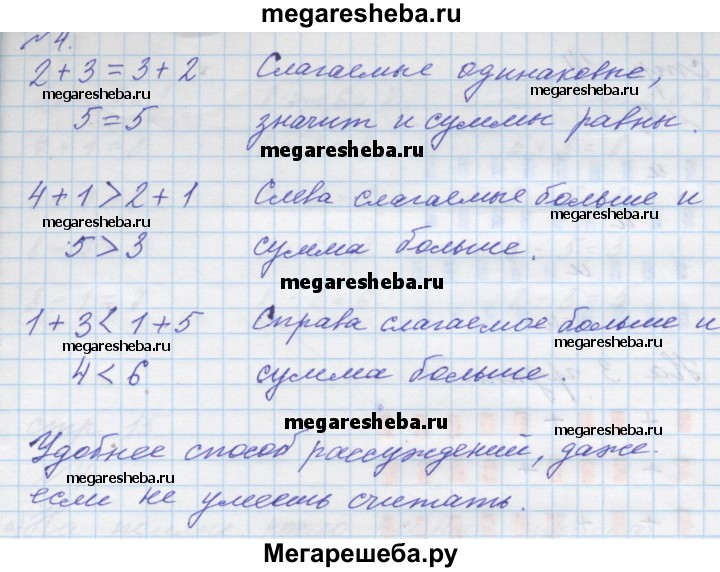 megaresheba.ru
№ 4.
2 + 3 = 3 + 2 Слагаемые одинаковые,
megaresheba.ru megaresheba.ru
5 = 5 значит и суммы равны.
megaresheba.ru
4 + 1 > 2 + 1 Слева слагаемые больше и
megaresheba.ru megaresheba.ru
5 > 3 сумма больше.
megaresheba.ru
1 + 3 < 1 + 5 Справа слагаемое больше и
megaresheba.ru megaresheba.ru
4 < 6 сумма больше.
megaresheba.ru
Удобнее способ рассуждений, даже
megaresheba.ru megaresheba.ru
если не умеешь считать.
Мегарешеба.ру